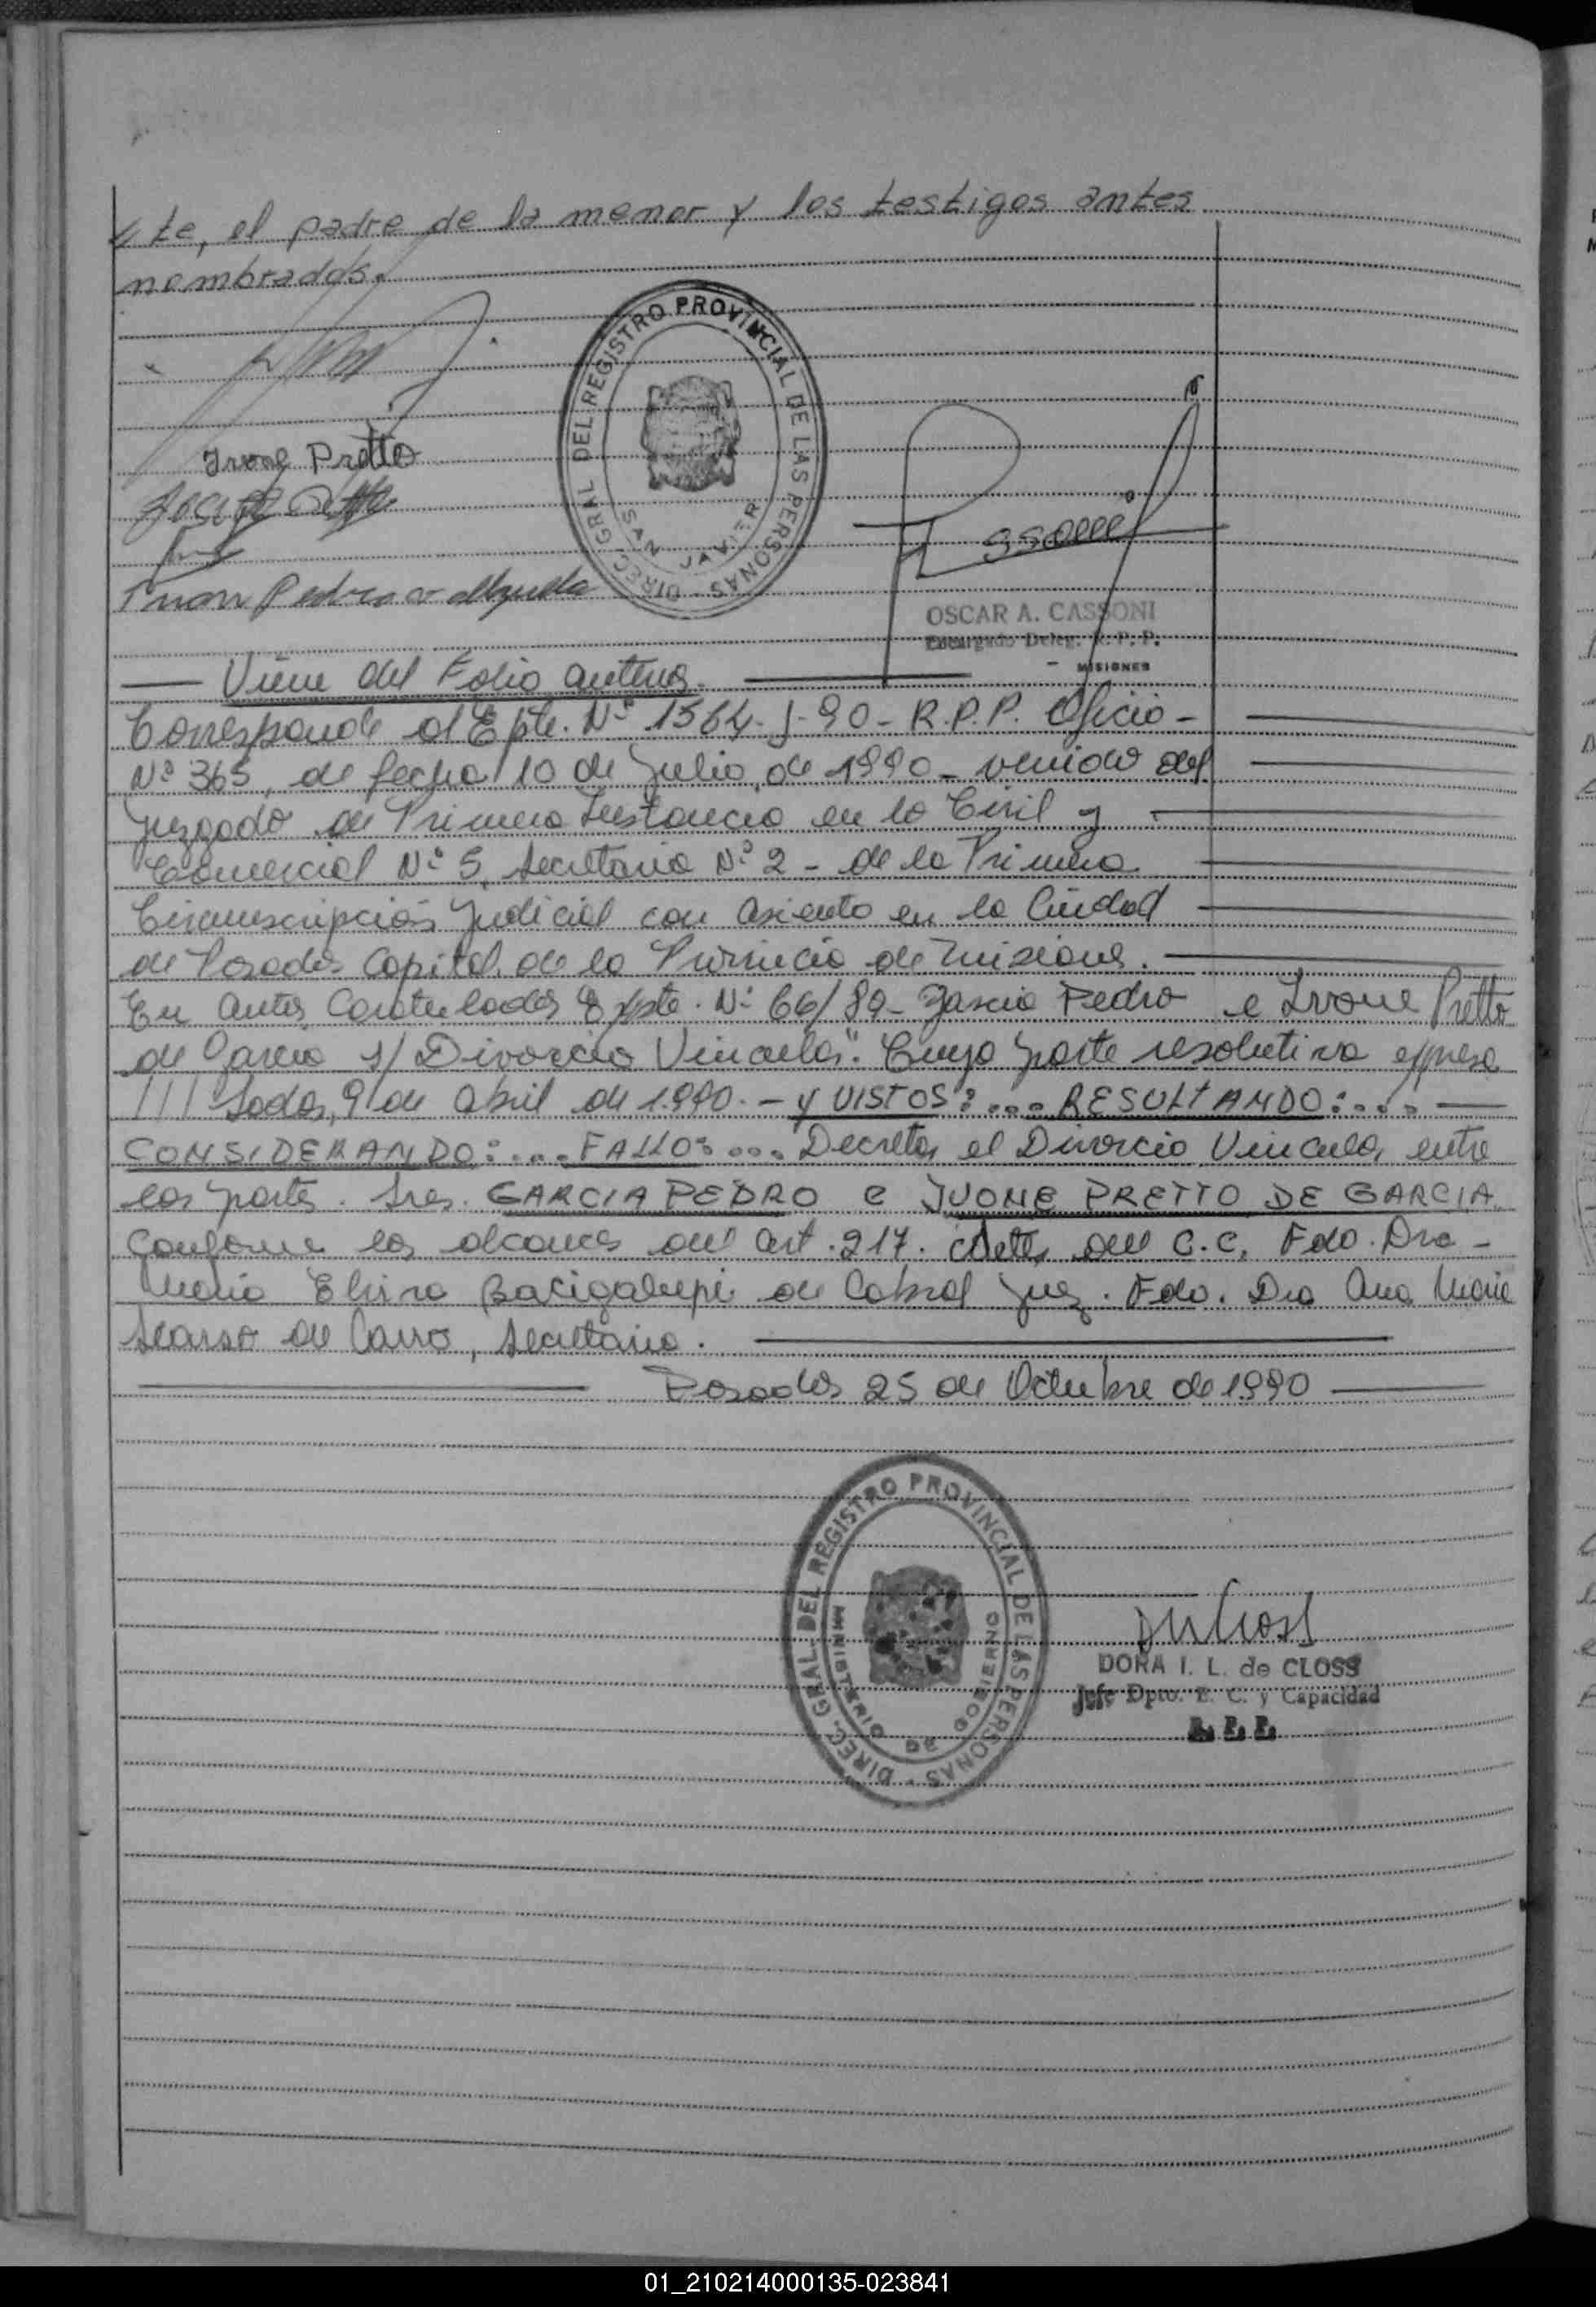 te, el padre de la menor y los testigos antes
nombrados.
DIREC. GRAL DEL REGISTRO PROVINCIAL DE LAS PERSONAS
SAN JAVIER
Ivone Pretto
OSCAR A. CASSONI
Encargado Deleg. R. P. P.
MISIONES
Viene del Folio anterior.
Corresponde al Epte. Nº 1564- J-90- R.P.P. Oficio-
Nº 365, de fecha 10 de Julio de 1990- venido del
Juzgado de Primera Instancia en lo Civil y
Comercial Nº 5, Secretaria Nº 2- de la Primera
Circunscripción Judicial con asiento en la Ciudad
de Posadas Capital de la Provincia de Misiones.
En autos Caratulados Expte. Nº 66/89- García Pedro e Ivone Pretto
de Garcia s/ Divorcio Vincular". Cuya parte resolutiva expresa
/// sadas, 9 de abril de 1.990.- y VISTOS:.... RESULTANDO:....
CONSIDERANDO:.... FALLO:.... Decretar el Divorcio Vincular entre
las partes. Sres. GARCIA PEDRO e IVONE PRETTO DE GARCIA.
Conforme los alcances del art. 217. del C.C. Fdo. Dra-
Maria Elvira Bacigalupi de Cabral Juez. Fdo. Dra Ana Maria
de Carro, Secretaria.
Posadas 25 de Octubre de 1.990
DIREC. GRAL DEL REGISTRO PROVINCIAL DE LAS PERSONAS
MINISTERIO DE GOBIERNO
DORA I. L. de CLOSS
Jefe Dpto. E. C. y Capacidad
R. P. P.
01_210214000135-023841